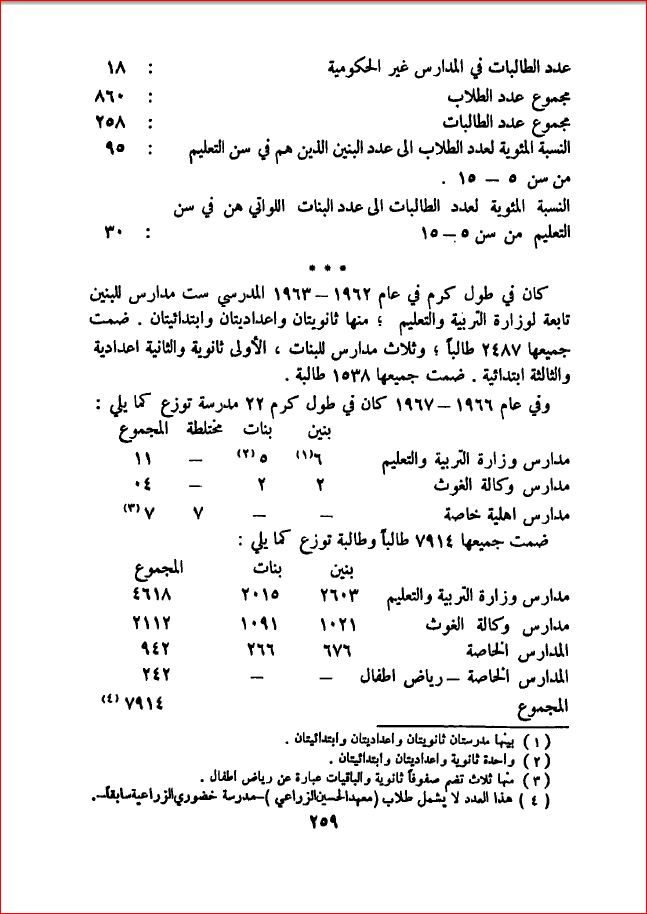 عدد الطالبات في المدارس غير الحكومية : ١٨
مجموع عدد الطلاب : ٨٦٠
مجموع عدد الطالبات : ٢٥٨
النسبة المئوية لعدد الطلاب الى عدد البنين الذين هم في سن التعليم : ٩٥
من سن ٥ – ١٥ .
النسبة المئوية لعدد الطالبات الى عدد البنات اللواتي هن في سن
التعليم من سن ٥ – ١٥ : ٣٠
* * *
كان في طول كرم في عام ١٩٦٢ – ١٩٦٣ المدرسي ست مدارس للبنين
تابعة لوزارة التربية والتعليم ؛ منها ثانويتان واعداديتان وابتدائيتان . ضمت
جميعها ٢٤٨٧ طالباً ؛ وثلاث مدارس للبنات ، الأولى ثانوية والثانية اعدادية
والثالثة ابتدائية . ضمت جميعها ١٥٣٨ طالبة .
وفي عام ١٩٦٦ – ١٩٦٧ كان في طول كرم ٢٢ مدرسة توزع كما يلي :
بنين بنات مختلطة المجموع
مدارس وزارة التربية والتعليم ٦(١) ٥(٢) – ١١
مدارس وكالة الغوث ٢ ٢ – ٠٤
مدارس اهلية خاصة – – ٧ ٧(٣)
ضمت جميعها ٧٩١٤ طالباً وطالبة توزع كما يلي :
بنين بنات المجموع
مدارس وزارة التربية والتعليم ٢٦٠٣ ٢٠١٥ ٤٦١٨
مدارس وكالة الغوث ١٠٢١ ١٠٩١ ٢١١٢
المدارس الخاصة ٦٧٦ ٢٦٦ ٩٤٢
المدارس الخاصة – رياض اطفال – – ٢٤٢
المجموع ٧٩١٤(٤)
(١) بينها مدرستان ثانويتان واعداديتان وابتدائيتان .
(٢) واحدة ثانوية واعداديتان وابتدائيتان .
(٣) منها ثلاث تضم صفوفاً ثانوية والباقيات عبارة عن رياض اطفال .
(٤) هذا العدد لا يشمل طلاب (معهد الحسين الزراعي) – مدرسة خضوري الزراعية سابقاً – .
٢٥٩